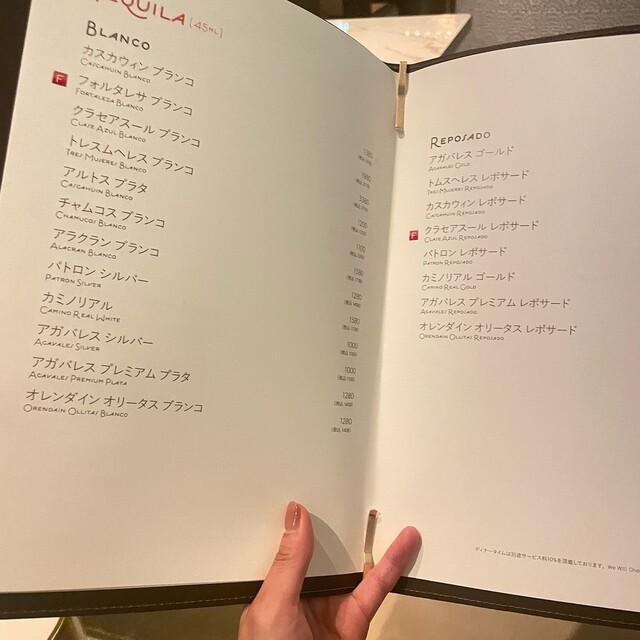 TEQUILA (45ML)
BLANCO
カスカウィン ブランコ
CASCAHUIN BLANCO
F フォルタレサ ブランコ
FORTALEZA BLANCO
クラセアスール ブランコ
CLASE AZUL BLANCO
トレスムヘレス ブランコ
TRES MUJERES BLANCO
アルトス プラタ
CASCAHUIN BLANCO
チャムコス ブランコ
CHAMUCOS BLANCO
アラクラン ブランコ
ALACRAN BLANCO
パトロン シルバー
PATRON SILVER
カミノリアル
CAMINO REAL WHITE
アガバレス シルバー
AGAVALES SILVER
アガバレス プレミアム プラタ
AGAVALES PREMIUM PLATA
オレンダイン オリータス ブランコ
ORENDAIN OLLITAS BLANCO
3380
1200
1100
1580
1280
1580
1000
1000
1280
1280
REPOSADO
アガバレス ゴールド
AGAVALES GOLD
トムスヘレス レポサード
TRES MUJERES REPOSADO
カスカウィン レポサード
CASCAHUIN REPOSADO
F クラセアスール レポサード
CLASE AZUL REPOSADO
パトロン レポサード
PATRON REPOSADO
カミノリアル ゴールド
CAMINO REAL GOLD
アガバレス プレミアム レポサード
AGAVALES REPOSADO
オレンダイン オリータス レポサード
ORENDAIN OLLITAS REPOSADO
ディナータイムは別途サービス料10%を頂戴しております。 We Will